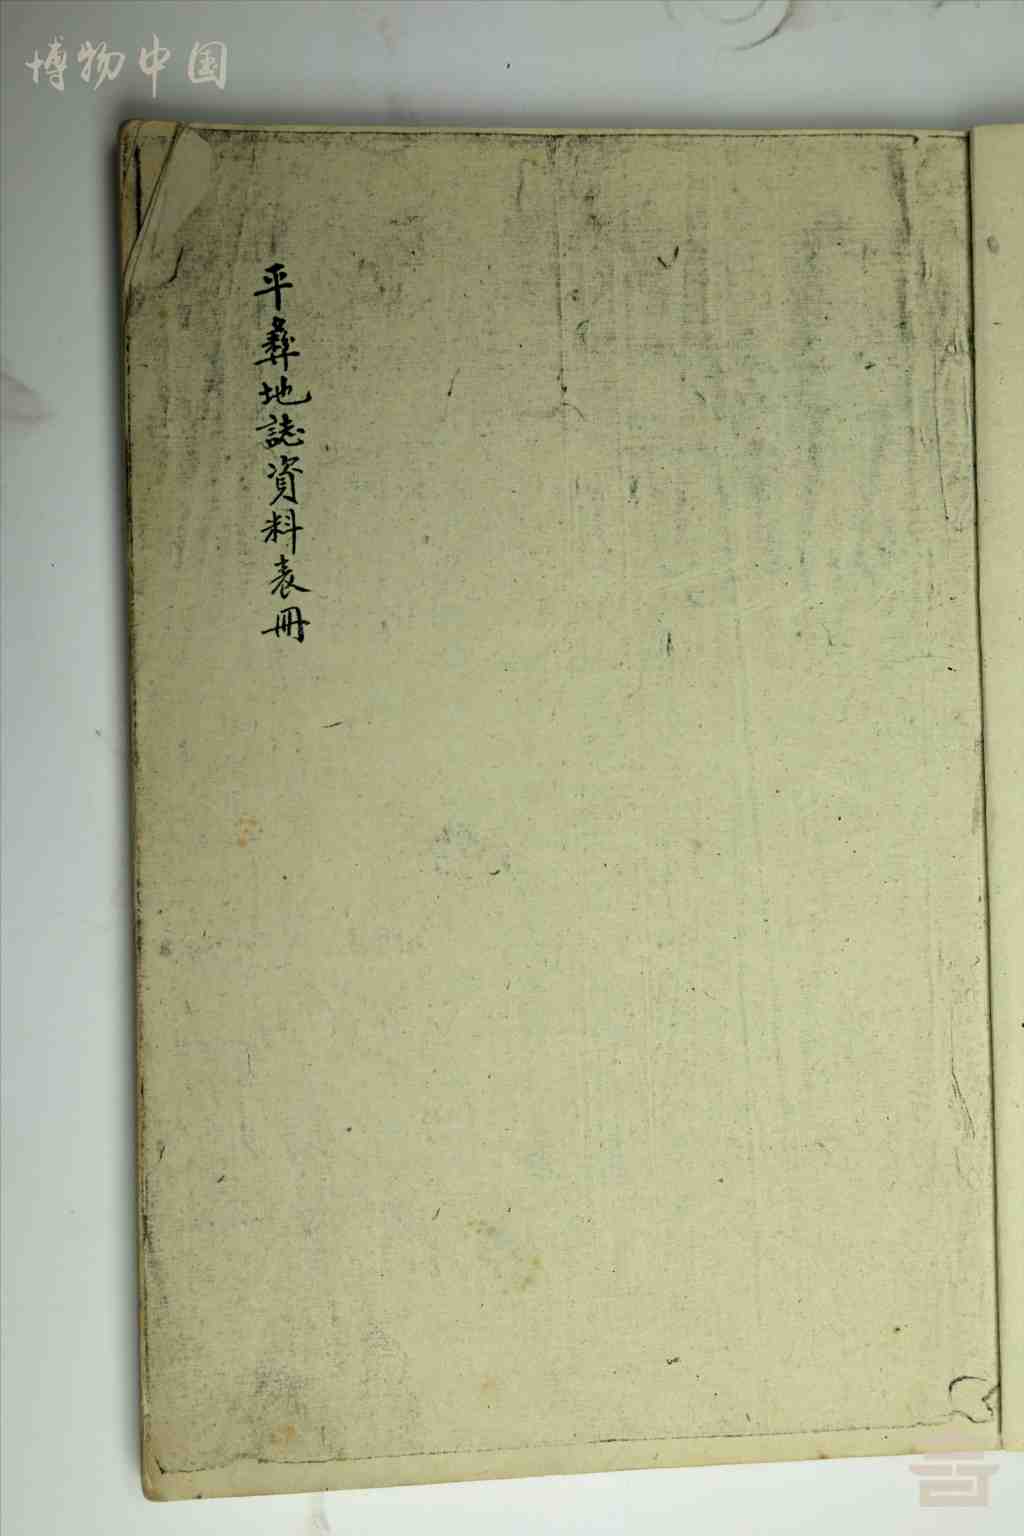 博物中国
平彝地誌資料表冊